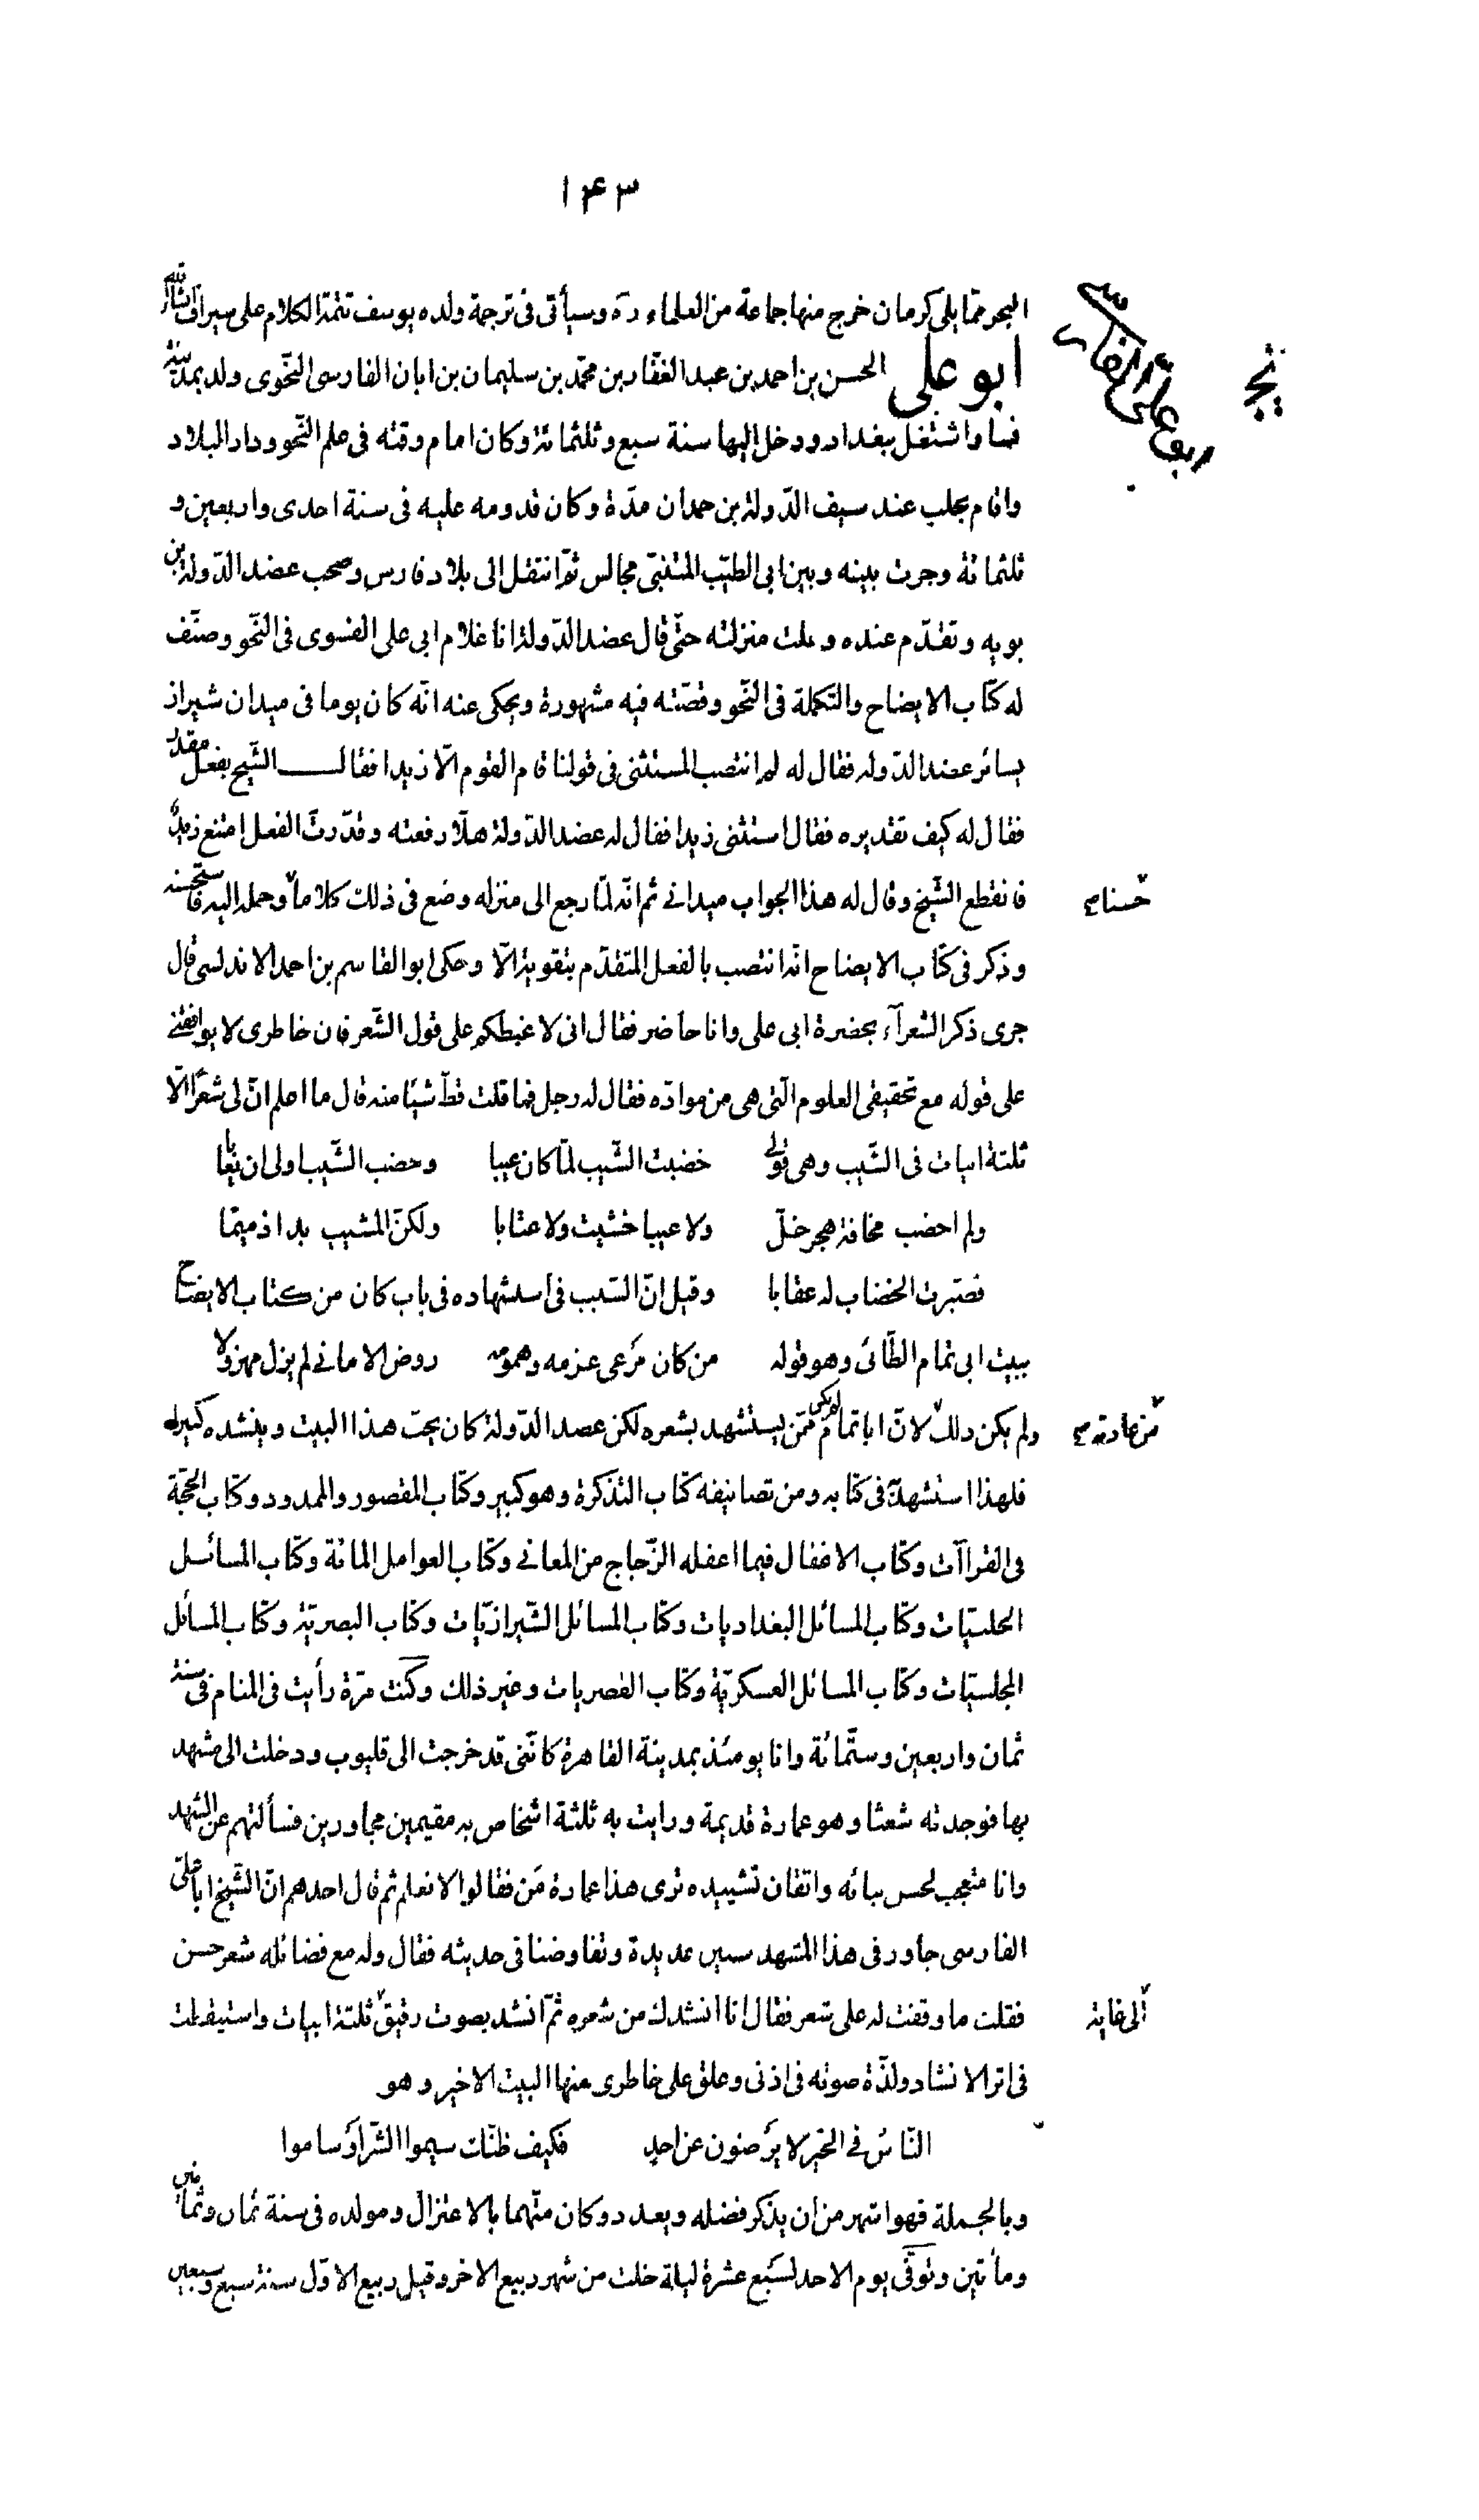 ١٤٣
البحر ممّا يلى كرمان خرج منها جماعة من العلماء ره وسيأتى فى ترجمة ولده يوسف تتمة الكلام على سيراف انشاء الله
ابو على الحسن بن احمد بن عبد الغفّار بن محمّد بن سليمان بن ابان الفارسى النحّوى ولد بمدينة
ابو علىّ الفارسى
فسا واشتغل ببغداد ودخل اليها سنة سبع وثلثمائة وكان امام وقته فى علم النّحو ودار البلاد
واقام بحلب عند سيف الدّولة بن حمدان مدّة وكان قدومه عليه فى سنة احدى واربعين و
ثلثمائة وجرت بينه وبين ابى الطيّب المتنبّى مجالس ثمّ انتقل الى بلاد فارس وصحب عضد الدّولة بن
بويه وتقدّم عنده وعلت منزلته حتّى قال عضد الدّولة انا غلام ابى على الفسوى فى النّحو وصنّف
له كتاب الايضاح والتكملة فى النّحو وقصّته فيه مشهورة ويحكى عنه انّه كان يوما فى ميدان شيراز
يسائر عضد الدّولة فقال له لم انتصب المستثنى فى قولنا قام القوم الّا زيدا فقال الشّيخ بفعل مقدّر
فقال له كيف تقديره فقال استثنى زيدا فقال له عضد الدّولة هلّا رفعته وقدّرت الفعل امتنع زيدٌ
فانقطع الشّيخ وقال له هذا الجواب ميدانى ثم انّه لمّا رجع الى منزله وضع فى ذلك كلاما وحمله اليه فاستحسنه
حسنا صح
وذكر فى كتاب الايضاح انّه انتصب بالفعل المتقدّم بتقوية الّا وحكى ابو القاسم بن احمد الاندلسى قال
جرى ذكر الشعرآء بحضرة ابى على وانا حاضر فقال انى لاغبطكم على قول الشّعر فان خاطرى لا يوافقنى
على قوله مع تحقيقى العلوم الّتى هى من موادّه فقال له رجل فما قلت قطّ شيئا منه قال ما اعلم انّ لى شعرًا الّا
ثلثة ابيات فى الشّيب وهى قولى خضبت الشّيب لمّا كان عيبا وخضب الشّيب اولى ان يعابا
ولم اخضب مخافة هجر خلّ ولا عيبا خشيت ولا عتابا ولكنّ المشيب بدا ذميمًا
فصيّرت الخضاب له عقابا وقيل انّ السّبب فى استشهاده فى باب كان من كتاب الايضاح
ببيت ابى تمام الطّائى وهو قوله من كان مَرعى عزمه وهمومه روض الامانى لم يزل مهزولا
ولم يكن ذلك لانّ ابا تمام لم يكن ممّن يستشهد بشعره لكن عضد الدّولة كان يحبّ هذا البيت وينشده كثيرا
من عادته صح
فلهذا استشهد به فى كتابه ومن تصانيفه كتاب التذكرة وهو كبير وكتاب المقصور والممدود وكتاب الحجّة
فى القراآت وكتاب الاغفال فيما اغفله الزّجاج من المعانى وكتاب العوامل المائة وكتاب المسائل
الحلبيّات وكتاب المسائل البغداديات وكتاب المسائل الشّيرازيّات وكتاب البصريّة وكتاب المسائل
المجلسيّات وكتاب المسائل العسكريّة وكتاب القصريات وغير ذلك وكنت مرّة رأيت فى المنام فى سنة
ثمان واربعين وستّمائة وانا يومئذ بمدينة القاهرة كانّنى قد خرجت الى قليوب ودخلت الى مشهد
بها فوجدته شعثا وهو عمارة قديمة ورايت به ثلثة اشخاص به مقيمين مجاورين فسألتهم عن المشهد
وانا متعجب لحسن بنائه واتقان تشييده ترى هذا عمارة مَن فقالوا لا نعلم ثم قال احدهم انّ الشّيخ ابا علىّ
الفارسى جاور فى هذا المشهد سنين عديدة وتفاوضنا فى حديثه فقال وله مع فضائله شعر حسن
فقلت ما وقفت له على شعر فقال انا انشدك من شعره ثمّ انشد بصوت رقيق ثلثة ابيات واستيقظت
الى غاية
فى اثر الانشاد ولذّة صوته فى اذنى وعلق على خاطرى منها البيت الاخير وهو
النّاسُ فى الخير لا يرضون عن احدٍ فكيف ظنّك سيموا الشّر اوَ ساموا
وبالجملة فهو اشهر من ان يذكر فضله ويعدد وكان متّهما بالاعتزال ومولده فى سنة ثمان وثمانين
ومأتين وتوفّى يوم الاحد لسَبع عشرة ليلة خلت من شهر ربيع الاخر وقيل ربيع الاوّل سنة سبع وسبعين